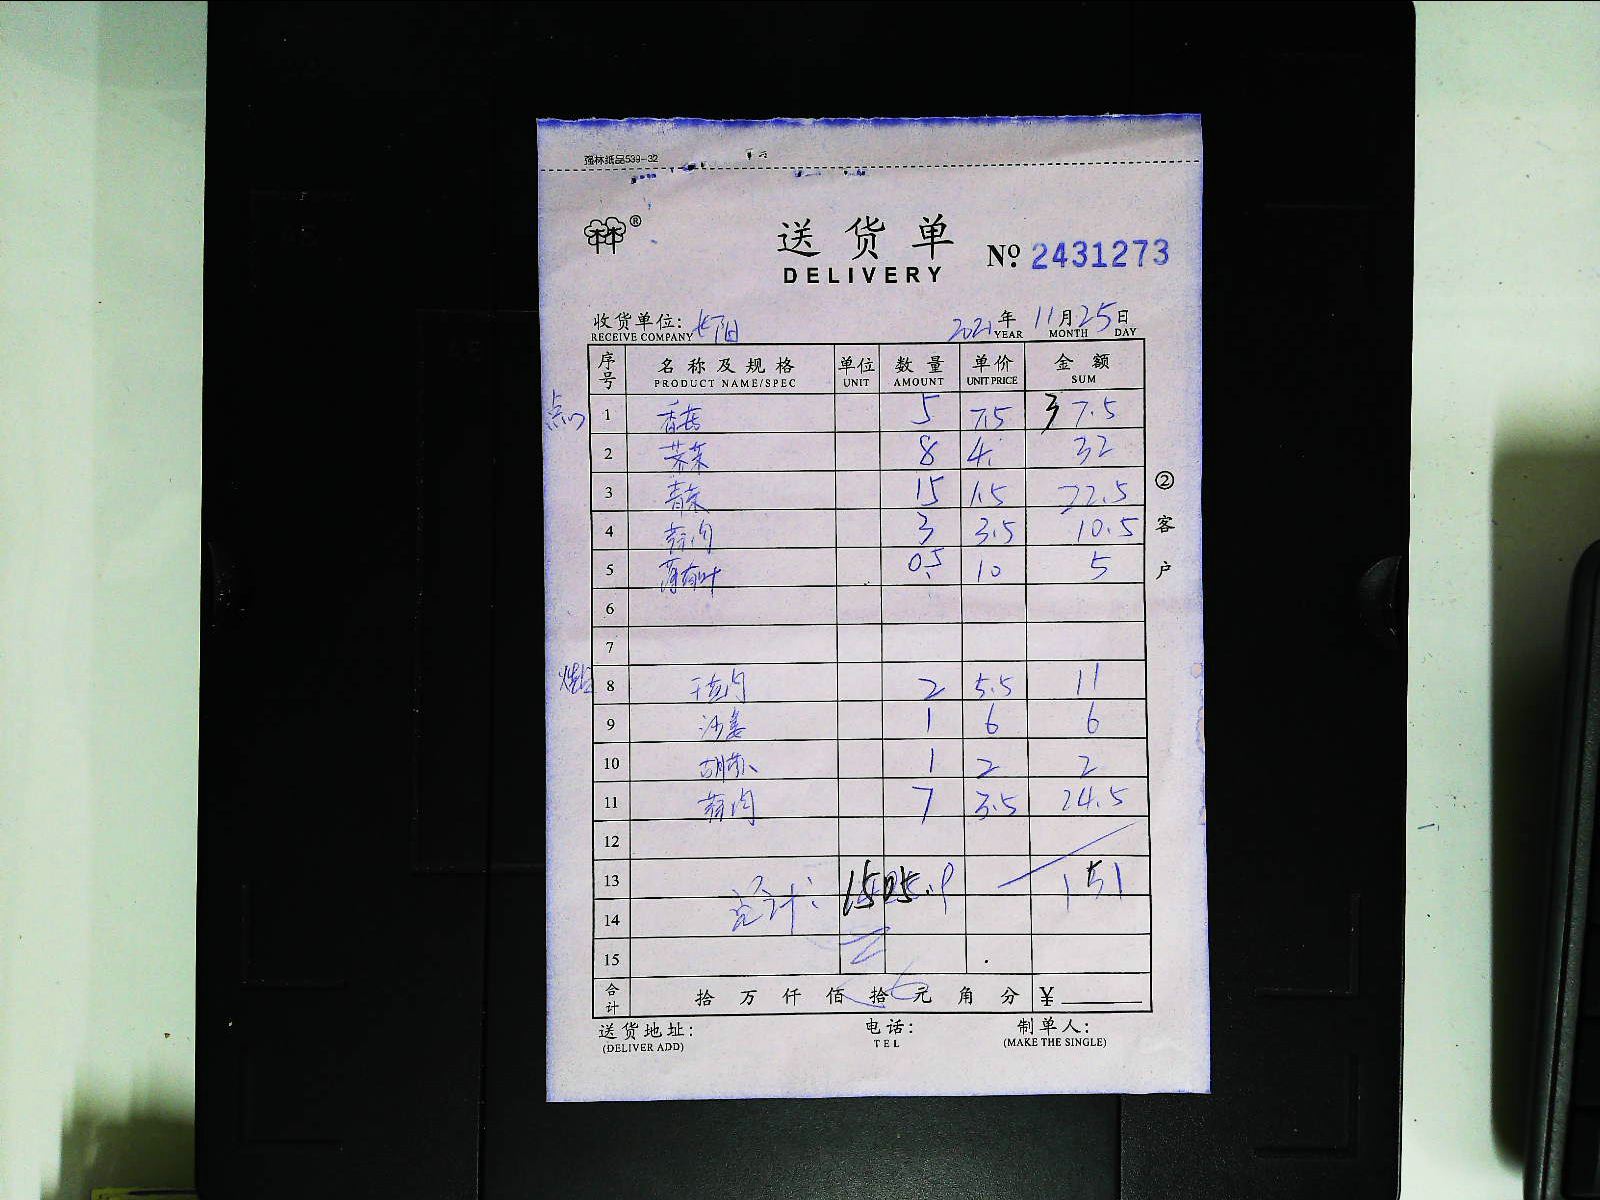 强林纸品539-32
林®
送货单
DELIVERY
№ 2431273
收货单位: 2021年 11月25日
RECEIVE COMPANY YEAR MONTH DAY
序号 名称及规格 单位 数量 单价 金额
PRODUCT NAME/SPEC UNIT AMOUNT UNIT PRICE SUM
点心 1 香菇 5 7.5 37.5
2 芥菜 8 4. 32
3 青菜 15 1.5 22.5
4 蒜肉 3 3.5 10.5
5 薄荷叶 0.5 10 5
6
7
烧腊 8 干葱肉 2 5.5 11
9 沙姜 1 6 6
10 1 2 2
11 蒜肉 7 3.5 24.5
12
13 151
总计:
14
15
合计 拾 万 仟 佰 拾 元 角 分 ¥
② 客户
送货地址: 电话: 制单人:
(DELIVER ADD) TEL (MAKE THE SINGLE)